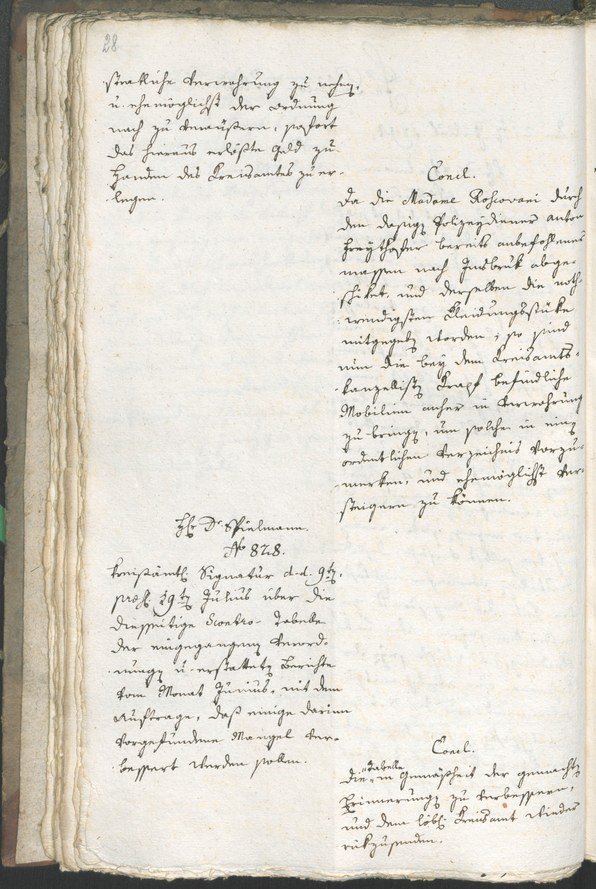 28
-steatliche Verwahrung zu nehmen,
u. ehemöglichst der Ordnung
nach zu veräußern, sofort
das hieraus erlößte Geld zu
Handen des Kreisamtes zu er-
-legen.
Concl.
Da die Madame Roscovani durch
den dasigen Polizeydiener Anton
Freythofer bereits anbefohlener
massen nach Insbruk abge-
-schikt, und derselben die noth-
-wendigsten Kleidungsstüke
mitgegeben worden, so sind
nun die bey dem Kreisamts-
-kanzellisten Krapf befindliche
Mobilien anher in Verwahrung
zu bringen, um solche in einen
ordentlichen Verzeichnis vorzu-
-merken, und ehemöglichst ver-
-steigern zu können.
Hr. Dr. Spielmann.
No 828.
Kreisämtl. Signatur d.d. 9ten,
praes. 19ten Julius über die
diesseitige Scontro-Tabelle
der eingegangenen Verord-
-nungen u. erstatteten Berichte
vom Monat Junius, mit dem
Auftrage, daß einige darinn
vorgefundene Mängel ver-
-bessert werden sollen.
Concl.
Die Tabelle in Gemäßheit der gemachten
Erinnerungen zu verbessern,
und dem löbl. Kreisamt wieder
rükzusenden.